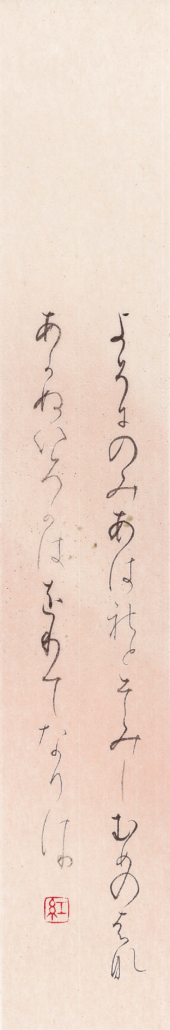 よそにのみあはれとそみしむめの者那
あかぬいろかは越りてなりけり
紅